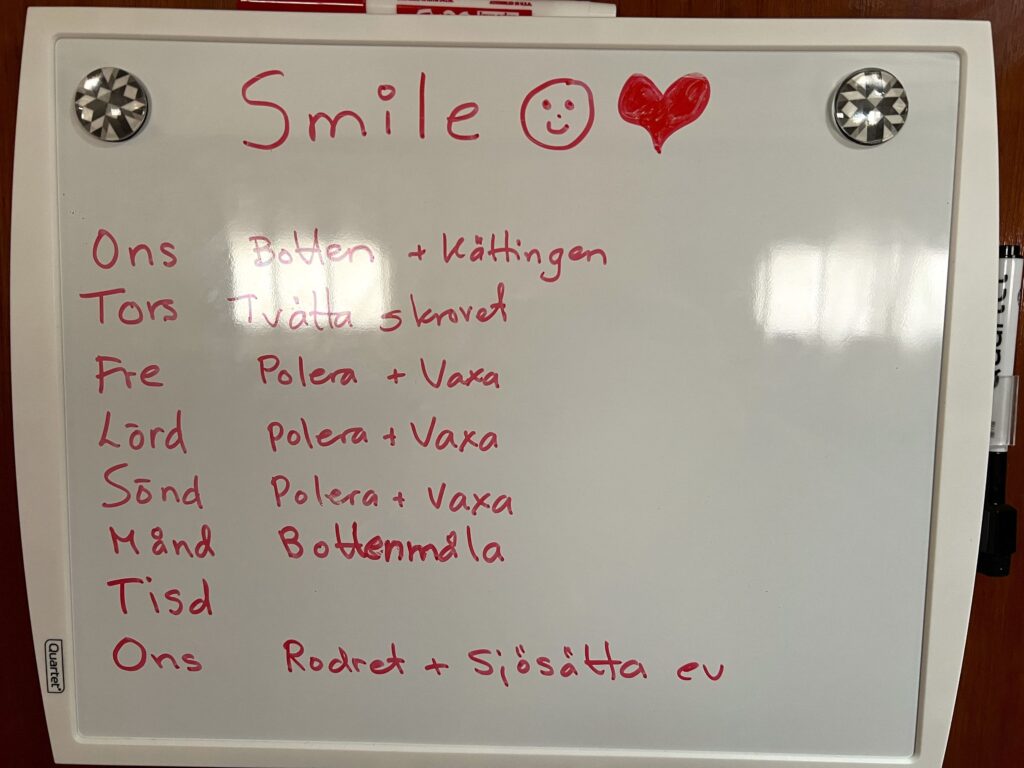 Smile
Ons Botten + Kättingen
Tors Tvätta skrovet
Fre Polera + Vaxa
Lörd Polera + Vaxa
Sönd Polera + Vaxa
Månd Bottenmåla
Tisd
Ons Rodret + Sjösätta ev
Quartet
Quartet